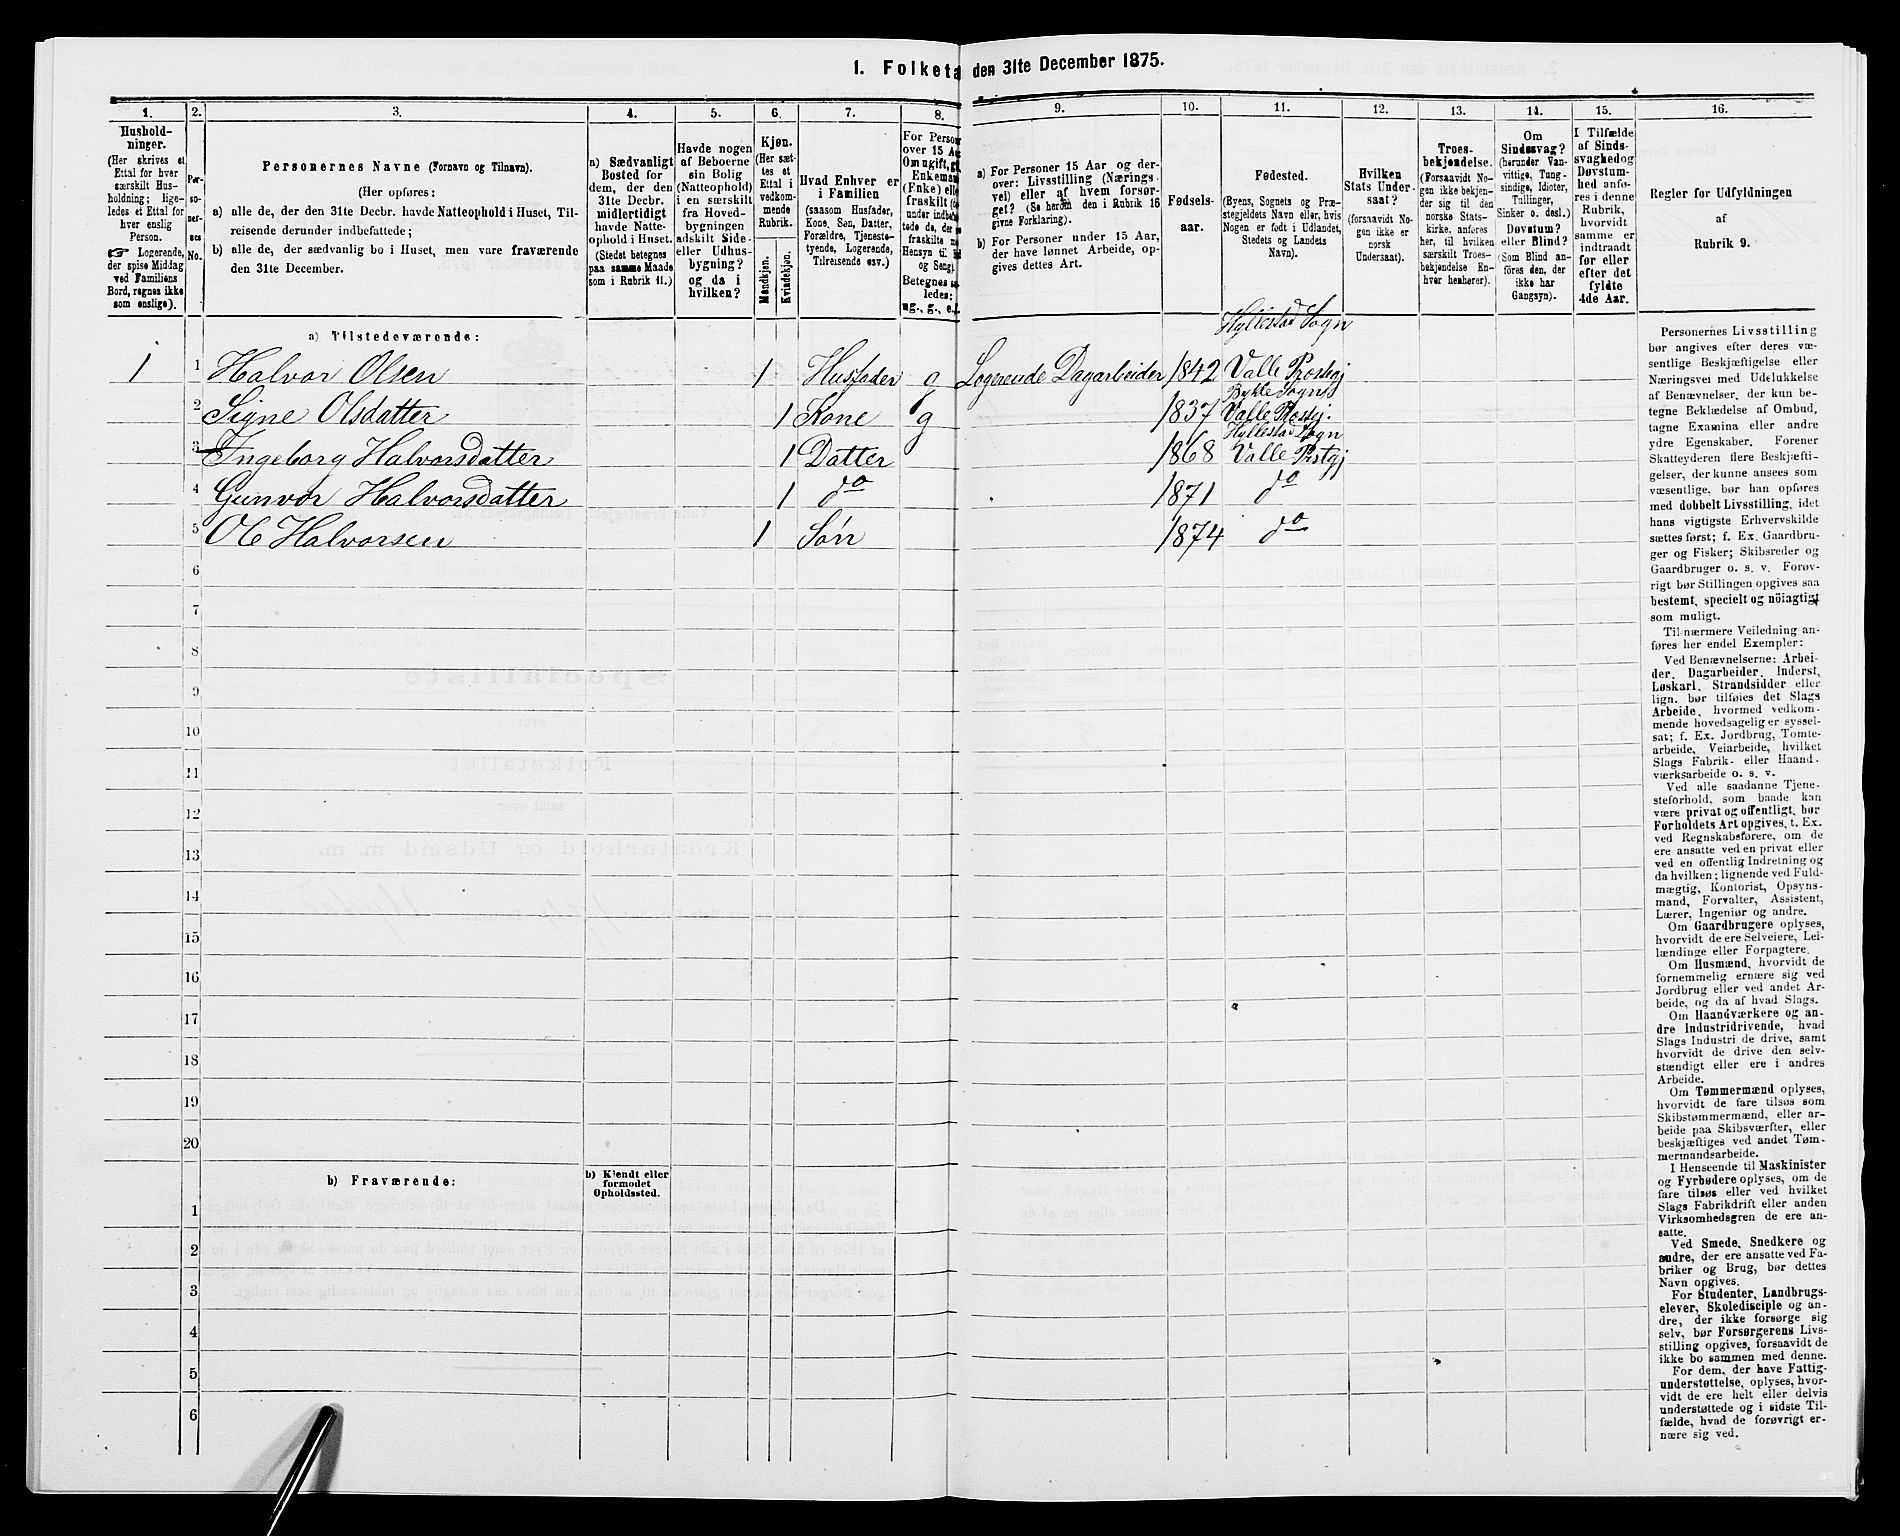 1. Folketa den 31te December 1875.
1. 2. 3. 4. 5. 6. 7. 8. 9. 10. 11. 12. 13. 14. 15. 16.
Hushold-
ninger.
(Her skrives et
Ettal for hver
særskilt Hus-
holdning; lige-
ledes et Ettal for
hver enslig
Person.
☞ Logerende,
der spise Middag
ved Familiens
Bord, regnes ikke
som enslige).
Per-
so-
ner-
nes
No.
Personernes Navne (Fornavn og Tilnavn).
(Her opføres:
a) alle de, der den 31te Decbr. havde Natteophold i Huset, Til-
reisende derunder indbefattede;
b) alle de, der sædvanlig bo i Huset, men vare fraværende
den 31te December.
a) Sædvanligt
Bosted for
dem, der den
31te Decbr.
midlertidigt
havde Natte-
ophold i Huset.
(Stedet betegnes
paa samme Maade
som i Rubrik 11.)
Havde nogen
af Beboerne
sin Bolig
(Natteophold)
i en særskilt
fra Hoved-
bygningen
adskilt Side-
eller Udhus-
bygning?
og da i
hvilken?
Kjøn.
(Her sæt-
tes et
Ettal i
vedkom-
mende
Rubrik.
Mandkjøn.
Kvindekjøn.
Hvad Enhver er
i Familien
(saasom Husfader,
Kone, Søn, Datter,
Forældre, Tjeneste-
tyende, Logerende,
Tilreisende osv.)
For Person
over 15 Aa
Om ugift, g
Enkema
(Fnke) elle
fraskilt
under indb
tede de, de
fraskilte
Hensyn til
og Seng).
Betegnes
ledes:
ug., g., e.,
a) For Personer 15 Aar og der-
over: Livsstilling (Nærings-
vei) eller af hvem forsør-
get? (Se herom den i Rubrik 16
givne Forklaring).
b) For Personer under 15 Aar,
der have lønnet Arbeide, op-
gives dettes Art.
Fødsels-
aar.
Fødested.
(Byens, Sognets og Præ-
stegjeldets Navn eller, hvis
Nogen er født i Udlandet,
Stedets og Landets
Navn).
Hvilken
Stats Under-
saat?
(forsaavidt No-
gen ikke er
norsk
Undersaat).
Troes-
bekjendelse.
(Forsaavidt No-
gen ikke bekjen-
der sig til den
norske Stats-
kirke, anføres
her, til hvilken
særskilt Troes-
bekjendelse En-
hver henhører).
Om
Sindssvag?
(herunder Van-
vittige, Tung-
sindige, Idioter,
Tullinger,
Sinker o. desl.)
Døvstum?
eller Blind?
(Som Blind an-
føres den, der
ikke har
Gangsyn).
I Tilfælde
af Sinds-
svaghed og
Døvstum-
hed anfø-
res i denne
Rubrik,
hvorvidt
samme er
indtraadt
før eller
efter det
fyldte
4de Aar.
Regler for Udfyldningen
af
Rubrik 9.
a) Tilstedeværende:
Hyllestad Sogn
1 1 Halvor Olsen 1 Husfader g Logerende Dagarbeider 1842 Valle Prestegj
Bykle Sogn
2 Signe Olsdatter 1 Kone g 1837 Valle Prestgj.
Hyllestad Sogn
3 Ingeborg Halvorsdatter 1 Datter 1868 Valle Prstgj
4 Gunvor Halvorsdatter 1 do 1871 do
5 Ole Halvorsen 1 Søn 1874 do
6
7
8
9
10
11
12
13
14
15
16
17
18
19
20
b) Fraværende:
b) Kjendt eller
formodet
Opholdssted.
1
2
3
4
5
6
Personernes Livsstilling
bør angives efter deres væ-
sentlige Beskjæftigelse eller
Næringsvei med Udelukkelse
af Benævnelser, der kun be-
tegne Beklædelse af Ombud,
tagne Examina eller andre
ydre Egenskaber. Forener
Skatteyderen flere Beskjæfti-
gelser, der kunne ansees som
væsentlige, bør han opføres
med dobbelt Livsstilling, idet
hans vigtigste Erhvervskilde
sættes først; f. Ex. Gaardbru-
ger og Fisker; Skibsreder og
Gaardbruger o. s. v. Forøv-
rigt bør Stillingen opgives saa
bestemt, specielt og nöiagtigt
som muligt.
Til nærmere Veiledning an-
føres her endel Exempler:
Ved Benævnelserne: Arbei-
der, Dagarbeider, Inderst,
Løskarl, Strandsidder eller
lign. bør tilføies det Slags
Arbeide, hvormed vedkom-
mende hovedsagelig er syssel-
sat; f. Ex. Jordbrug, Tomte-
arbeide, Veiarbeide, hvilket
Slags Fabrik- eller Haand-
værksarbeide o. s. v.
Ved alle saadanne Tjene-
steforhold, som baade kan
være privat og offentligt, bør
Forholdets Art opgives, t. Ex.
ved Regnskabsførere, om de
ere ansatte ved en privat eller
ved en offentlig Indretning og
da hvilken; lignende ved Fuld-
mægtig, Kontorist, Opsyns-
mand, Forvalter, Assistent,
Lærer, Ingeniør og andre.
Om Gaardbrugere oplyses,
hvorvidt de ere Selveiere, Lei-
lændinge eller Forpagtere.
Om Husmænd, hvorvidt de
fornemmelig ernære sig ved
Jordbrug eller ved andet Ar-
beide, og da af hvad Slags.
Om Haandværkere og an-
dre Industridrivende, hvad
Slags Industri de drive, samt
hvorvidt de drive den selv-
stændigt eller ere i andres
Arbeide.
Om Tømmermænd oplyses,
hvorvidt de fare tilsøs som
Skibstømmermænd, eller ar-
beide paa Skibsværfter, eller
beskjæftiges ved andet Tøm-
mermandsarbeide.
I Henseende til Maskinister
og Fyrbødere oplyses, om de
fare tilsøs eller ved hvilket
Slags Fabrikdrift eller anden
Virksomhedsgren de ere an-
satte.
Ved Smede, Snedkere og
andre, der ere ansatte ved Fa-
briker og Brug, bør dettes
Navn opgives.
For Studenter, Landbrugs-
elever, Skoledisciple og an-
dre, der ikke forsørge sig
selv, bør Forsørgerens Livs-
stilling opgives, forsaavidt de
ikke bo sammen med denne.
For dem, der have Fattig-
understøttelse, oplyses, hvor-
vidt de ere helt eller delvis
understøttede og i sidste Til-
fælde, hvad de forøvrigt er-
nære sig ved.